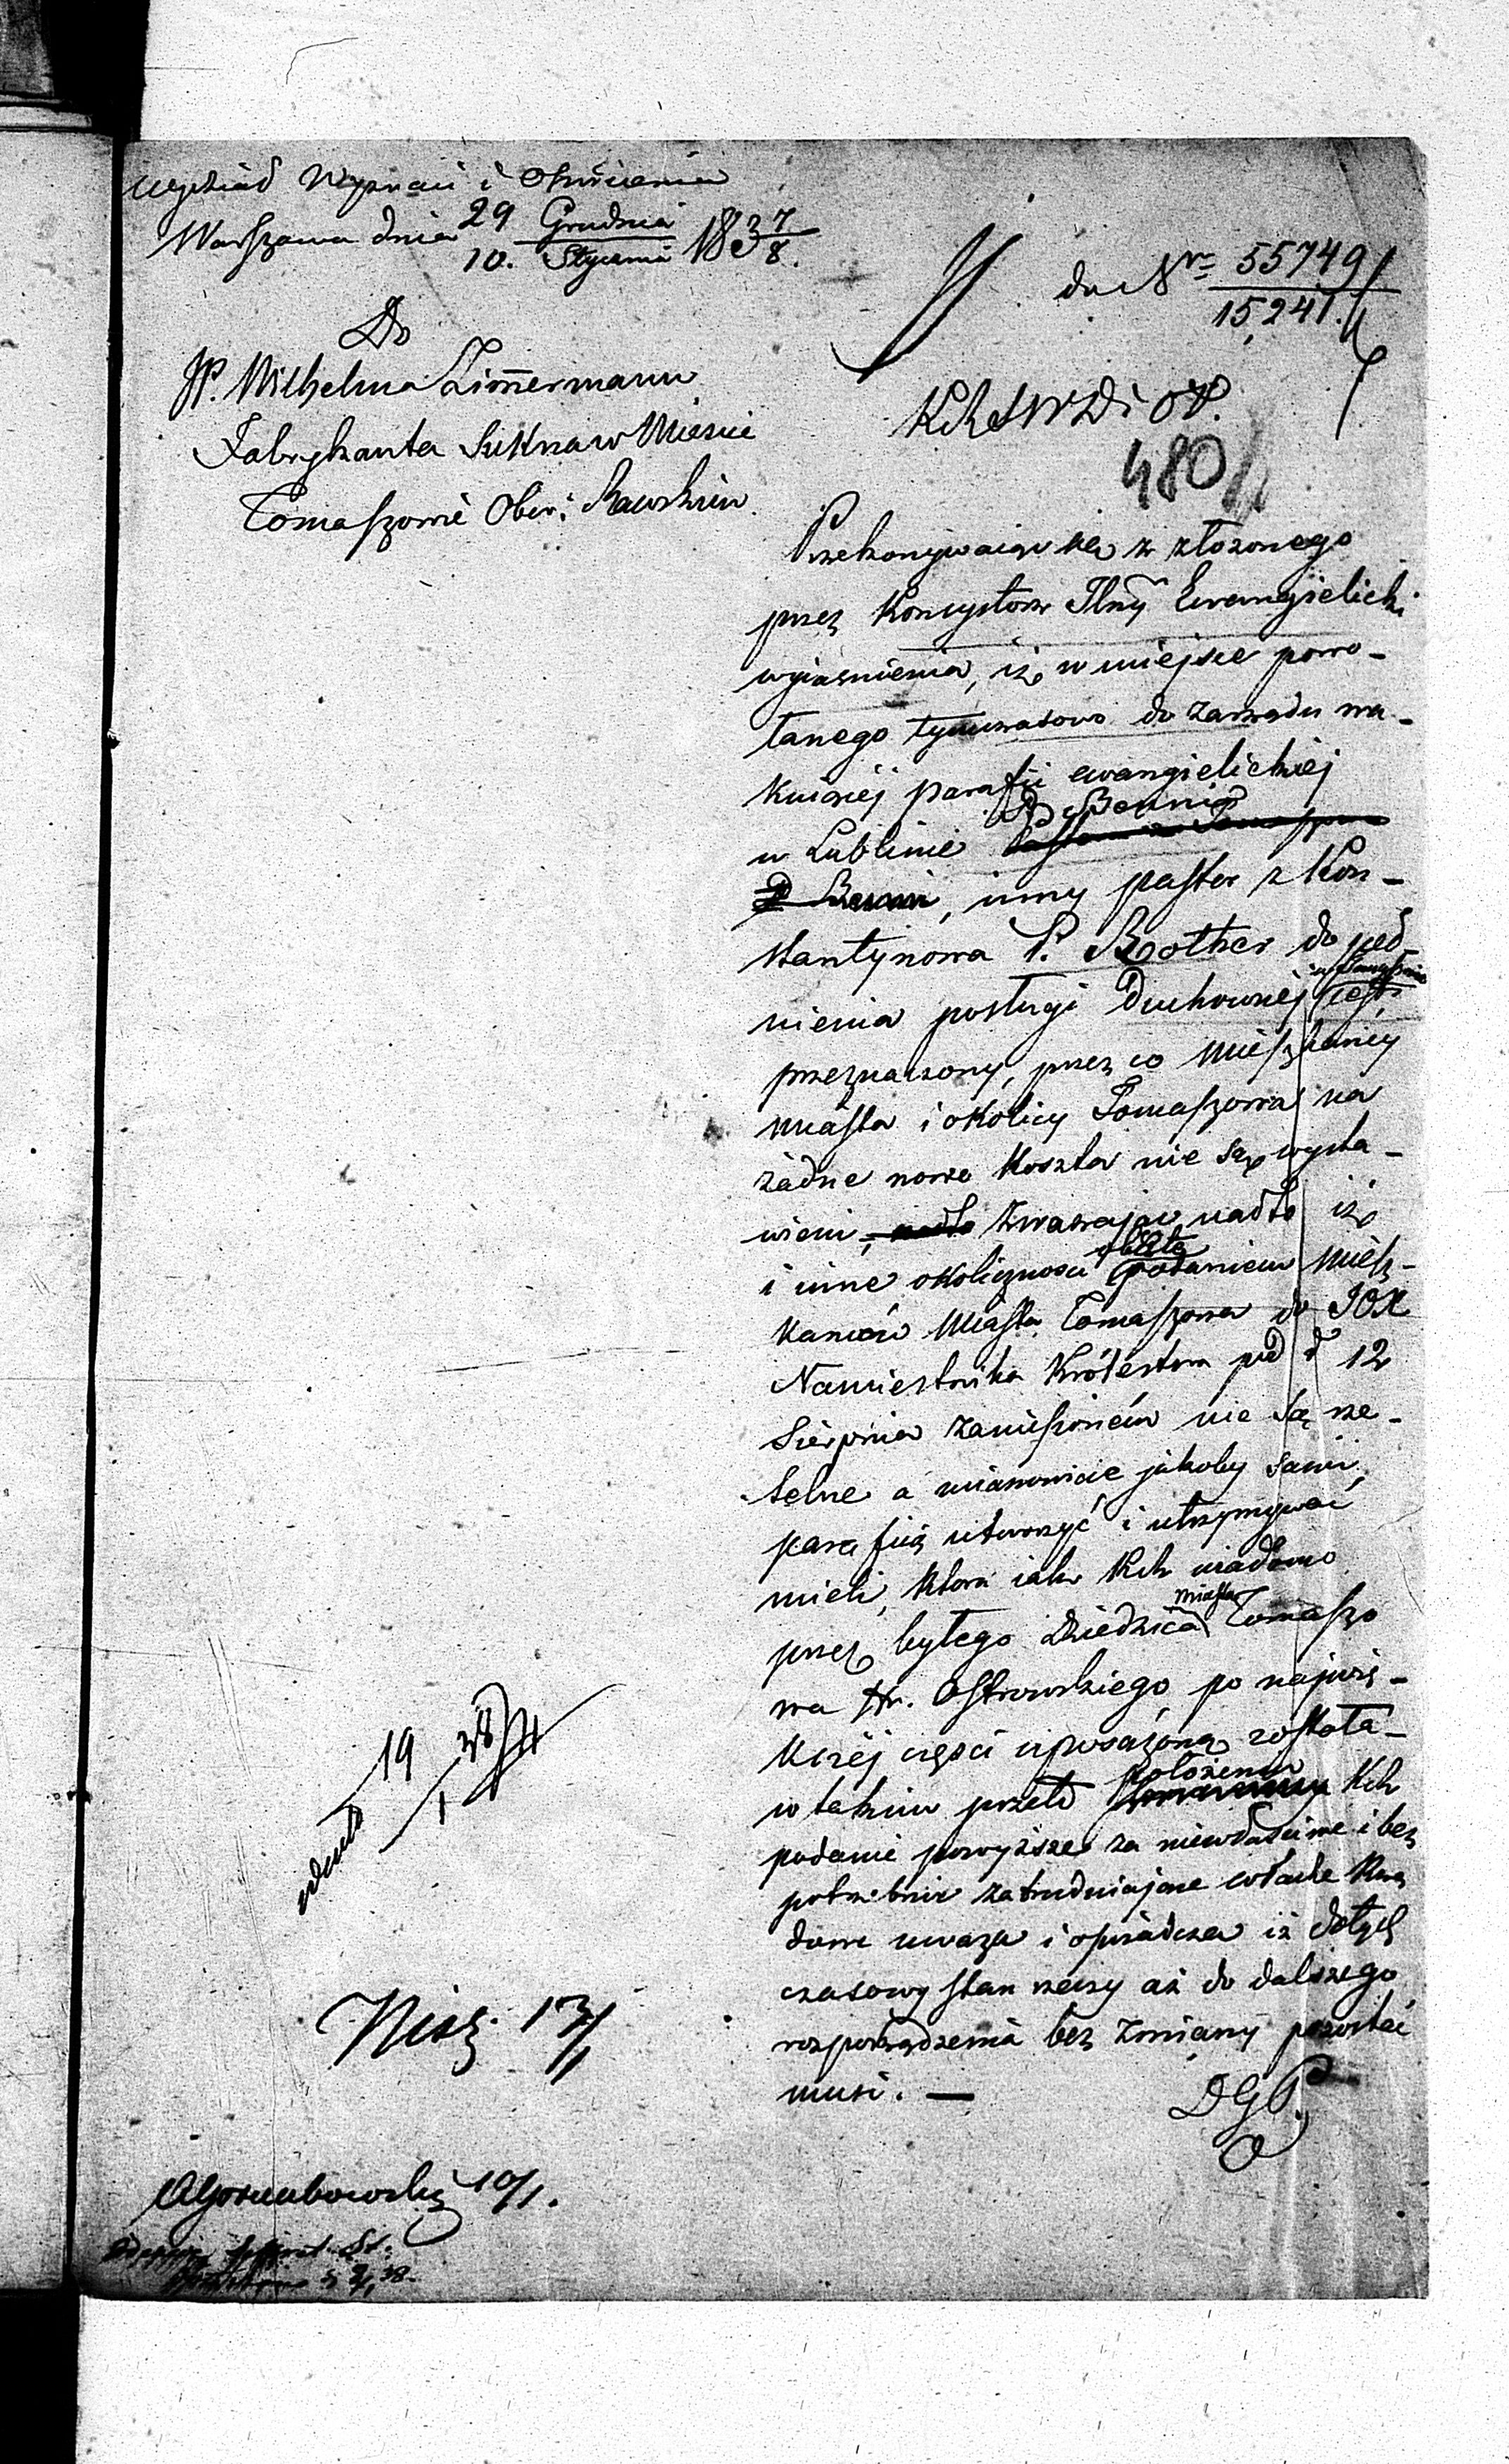 Wydział Wyznań i Oświecenia
Warszawa dnia 29 Grudnia / 10. Stycznia 183 7/8.
do Nro 55749 / 15,241.
Do
JP. Wilhelma Zimermann
Fabrykanta Sukna w Mieście
Tomaszowie Obw: Rawskim
KRSWDiOP.
480
Przekonywaiąc się z złożonego
przez Konsystorz Jlny Ewangielicki
wyiaśnienia, iż w miejsce powo-
łanego tymczasowo do zarządu wa-
kuiącéj parafii ewangielickiéj
w Lublinie P. Bennig
, inny pastor z Kon-
stantynowa P. Rother do peł-
nienia posługi Duchownéj w Tomaszowie jest
przeznaczony, przez co mieszkańcy
miasta i okolicy Tomaszowa na
żadne nowe koszta nie są wysta-
wieni, zważając nadto iż
i inne okoliczności objęte podaniem miesz-
kańców Miasta Tomaszowa do JOX
Namiestnika Królestwa pod d 12
Sierpnia zaniesioném nie są rze-
telne a mianowicie jakoby sami
parafią utworzyć i utrzymywać
mieli, która iak KRh wiadomo
przez byłego Dziedzica miasta Tomaszo
wa Hr. Ostrowskiego po najwię-
kszéj części uposażoną została-
w takim przeto położeniu KRh
podanie powyższe za niewłaściwe i bez
potrzebnie zatrudniające władze Rzą
dowe uważa i oświadcza iż dotych
czasowy stan rzeczy aż do dalszego
rozporządzenia bez zmiany pozostać
musi. —
DGP.
19/1 38
13/1
10/1.